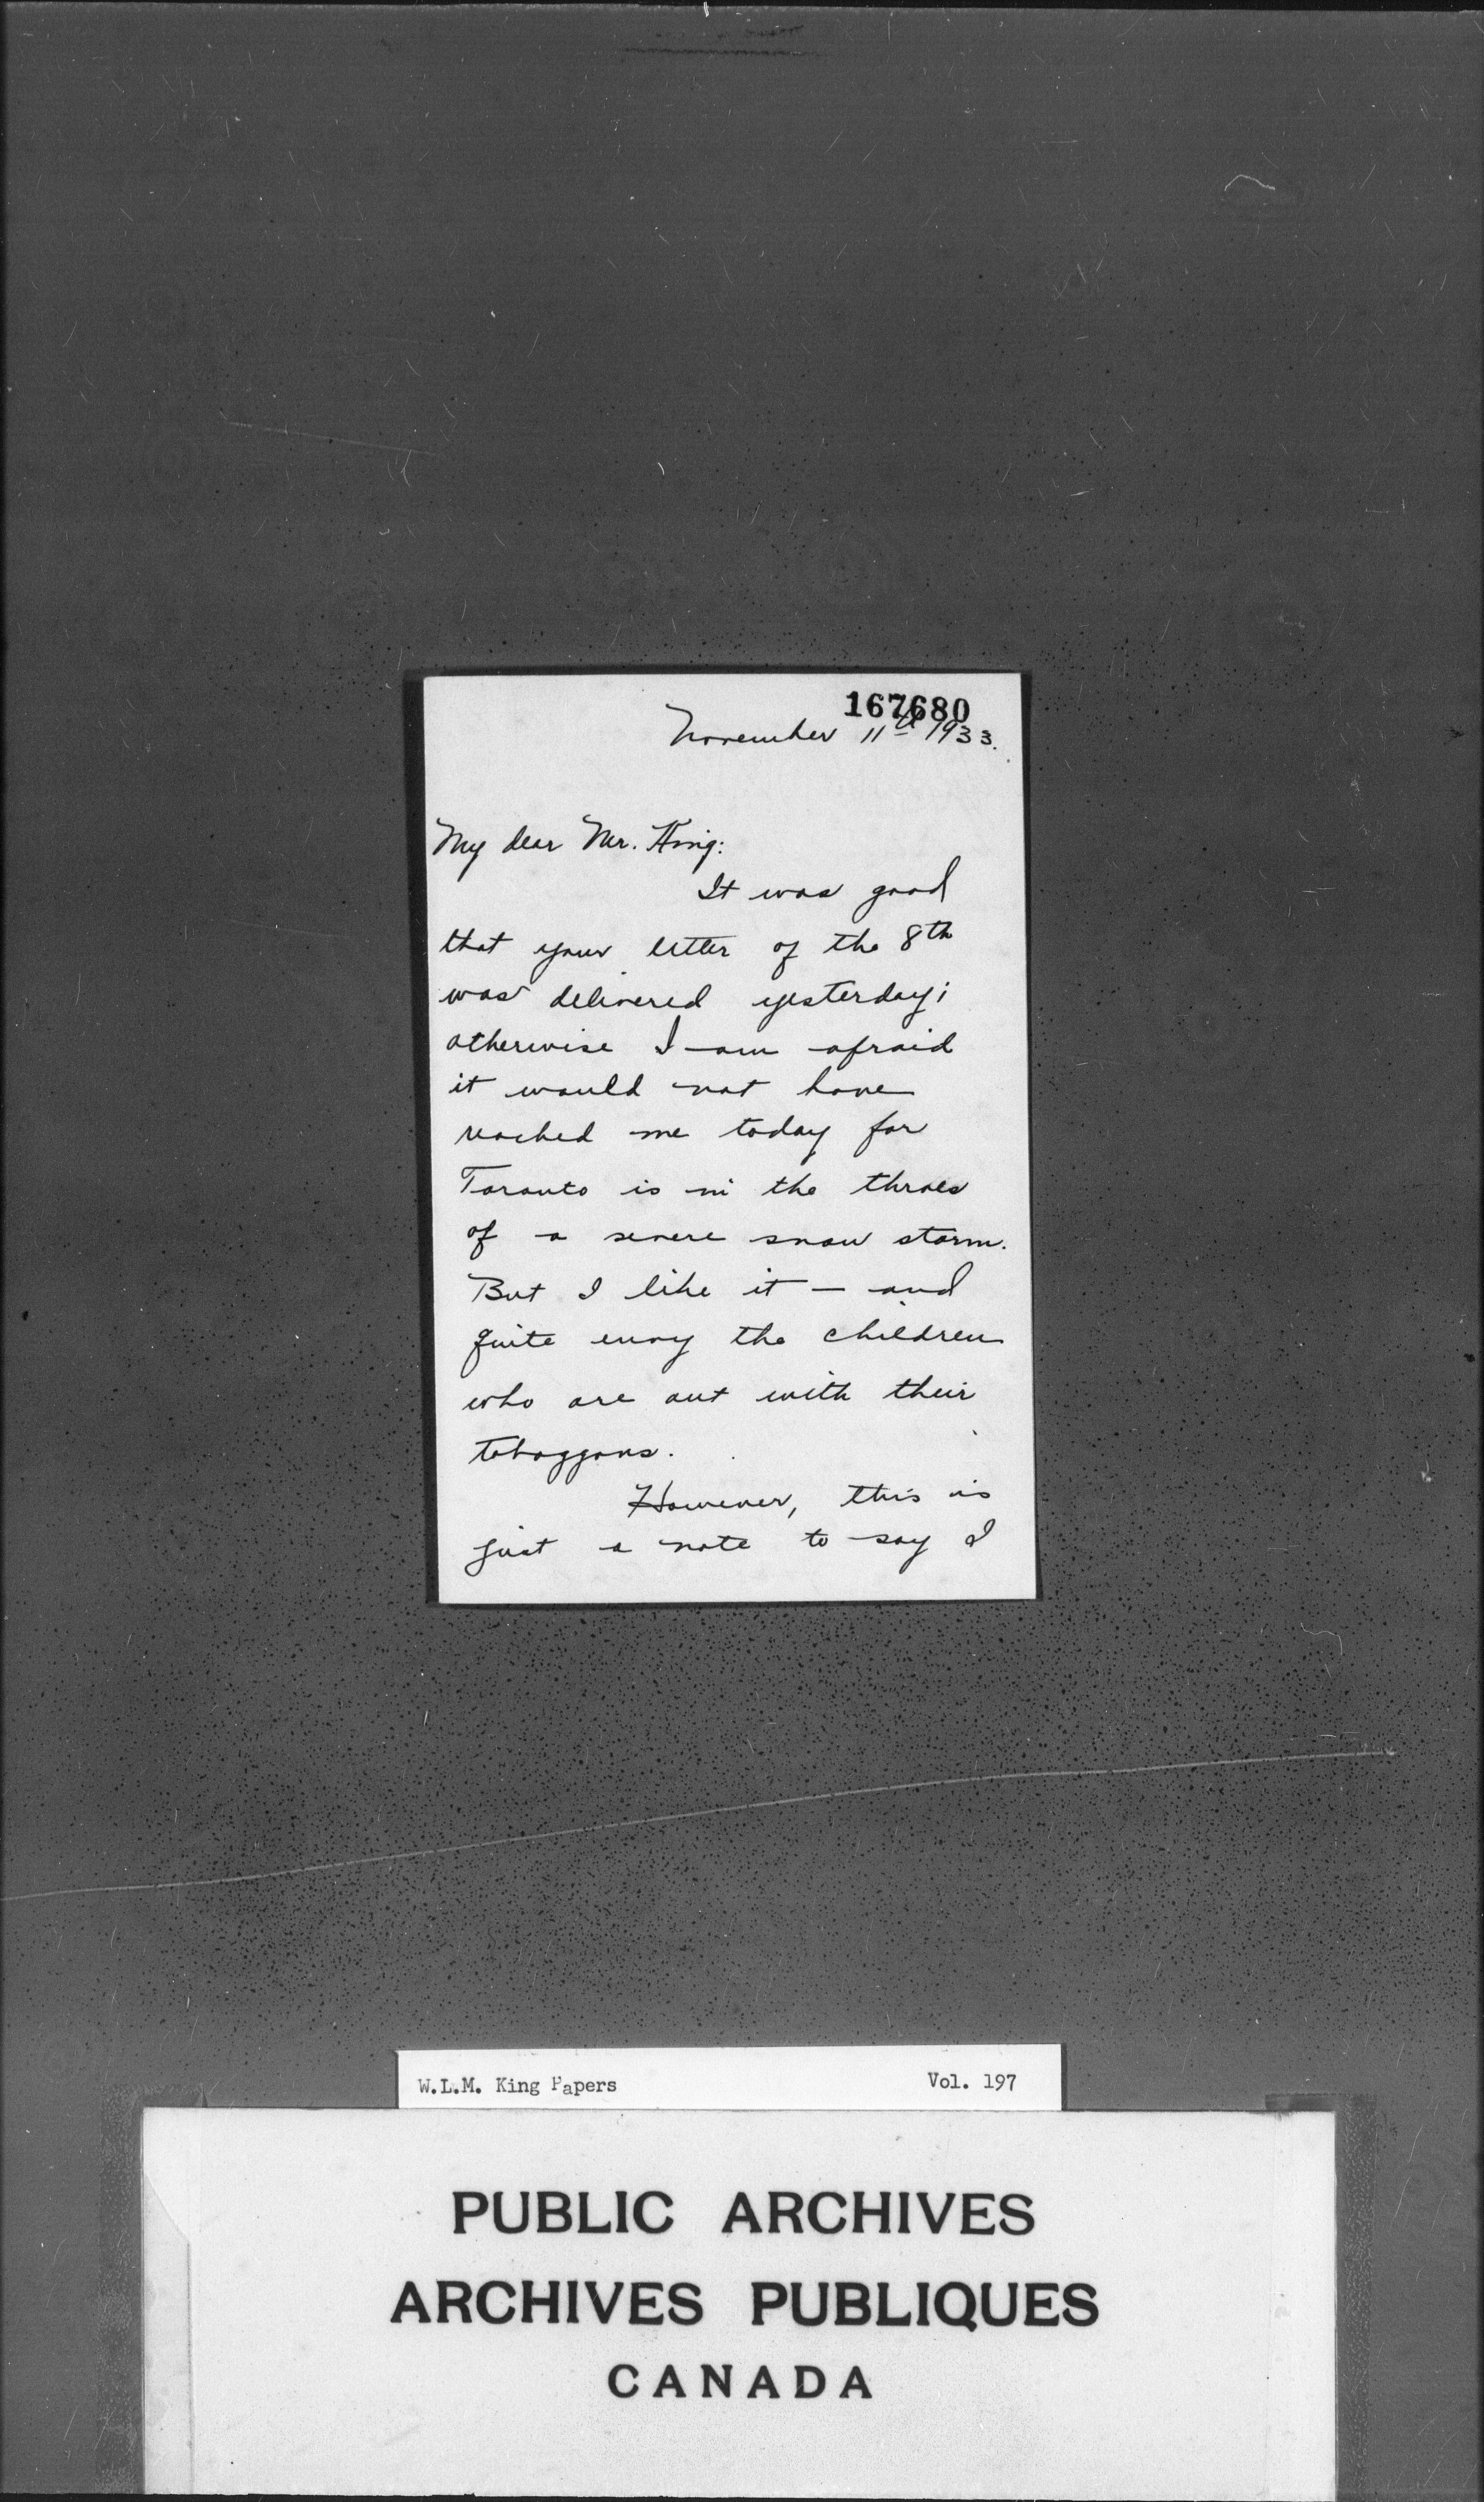 167680
November 11th 1933.
My dear Mr. King:
It was good
that your letter of the 8th
was delivered yesterday;
otherwise I am afraid
it would not have
reached me today for
Toronto is in the throes
of a severe snow storm.
But I like it — and
quite envy the children
who are out with their
toboggans.
However, this is
just a note to say I
W.L.M. King Papers Vol. 197
PUBLIC ARCHIVES
ARCHIVES PUBLIQUES
CANADA